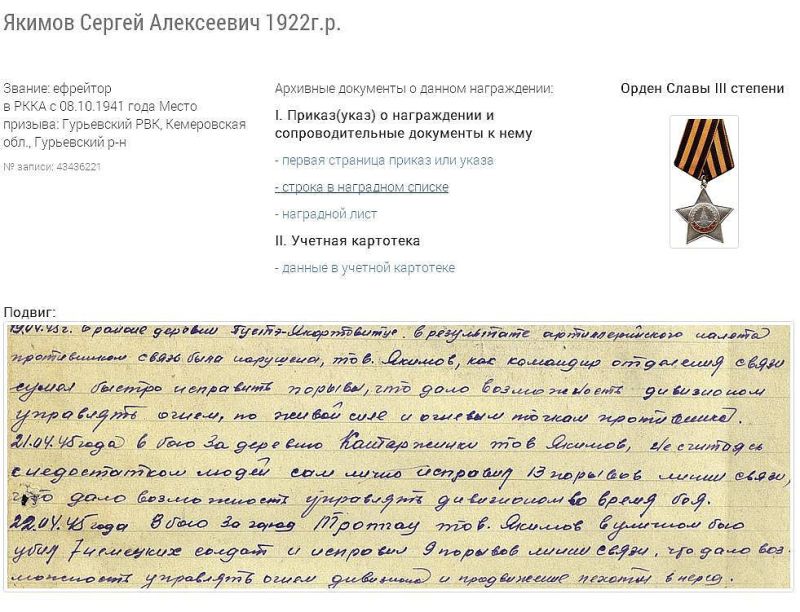 Якимов Сергей Алексеевич 1922г.р.
Звание: ефрейтор
в РККА с 08.10.1941 года Место
призыва: Гурьевский РВК, Кемеровская
обл., Гурьевский р-н
№ записи: 43436221
Архивные документы о данном награждении:
I. Приказ(указ) о награждении и
сопроводительные документы к нему
- первая страница приказ или указа
- строка в наградном списке
- наградной лист
II. Учетная картотека
- данные в учетной картотеке
Орден Славы III степени
Подвиг:
19.04.45г. в районе деревни в результате артиллерийского налета
противником связь была нарушена, тов. Якимов, как командир отделения связи
сумел быстро исправить порывы, что дало возможность дивизионом
управлять огнем, по живой силе и огневым точкам противника.
21.04.45 года в бою за деревню тов Якимов, не считаясь
с недостатком людей сам лично исправил 13 порывов линии связи,
что дало возможность управлять дивизионом во время боя.
22.04.45 года В бою за город Троппау тов. Якимов в уличном бою
убил 7 немецких солдат и исправил 9 порывов линии связи, что дало воз-
можность управлять огнем дивизиона и продвижение пехоты в перед.